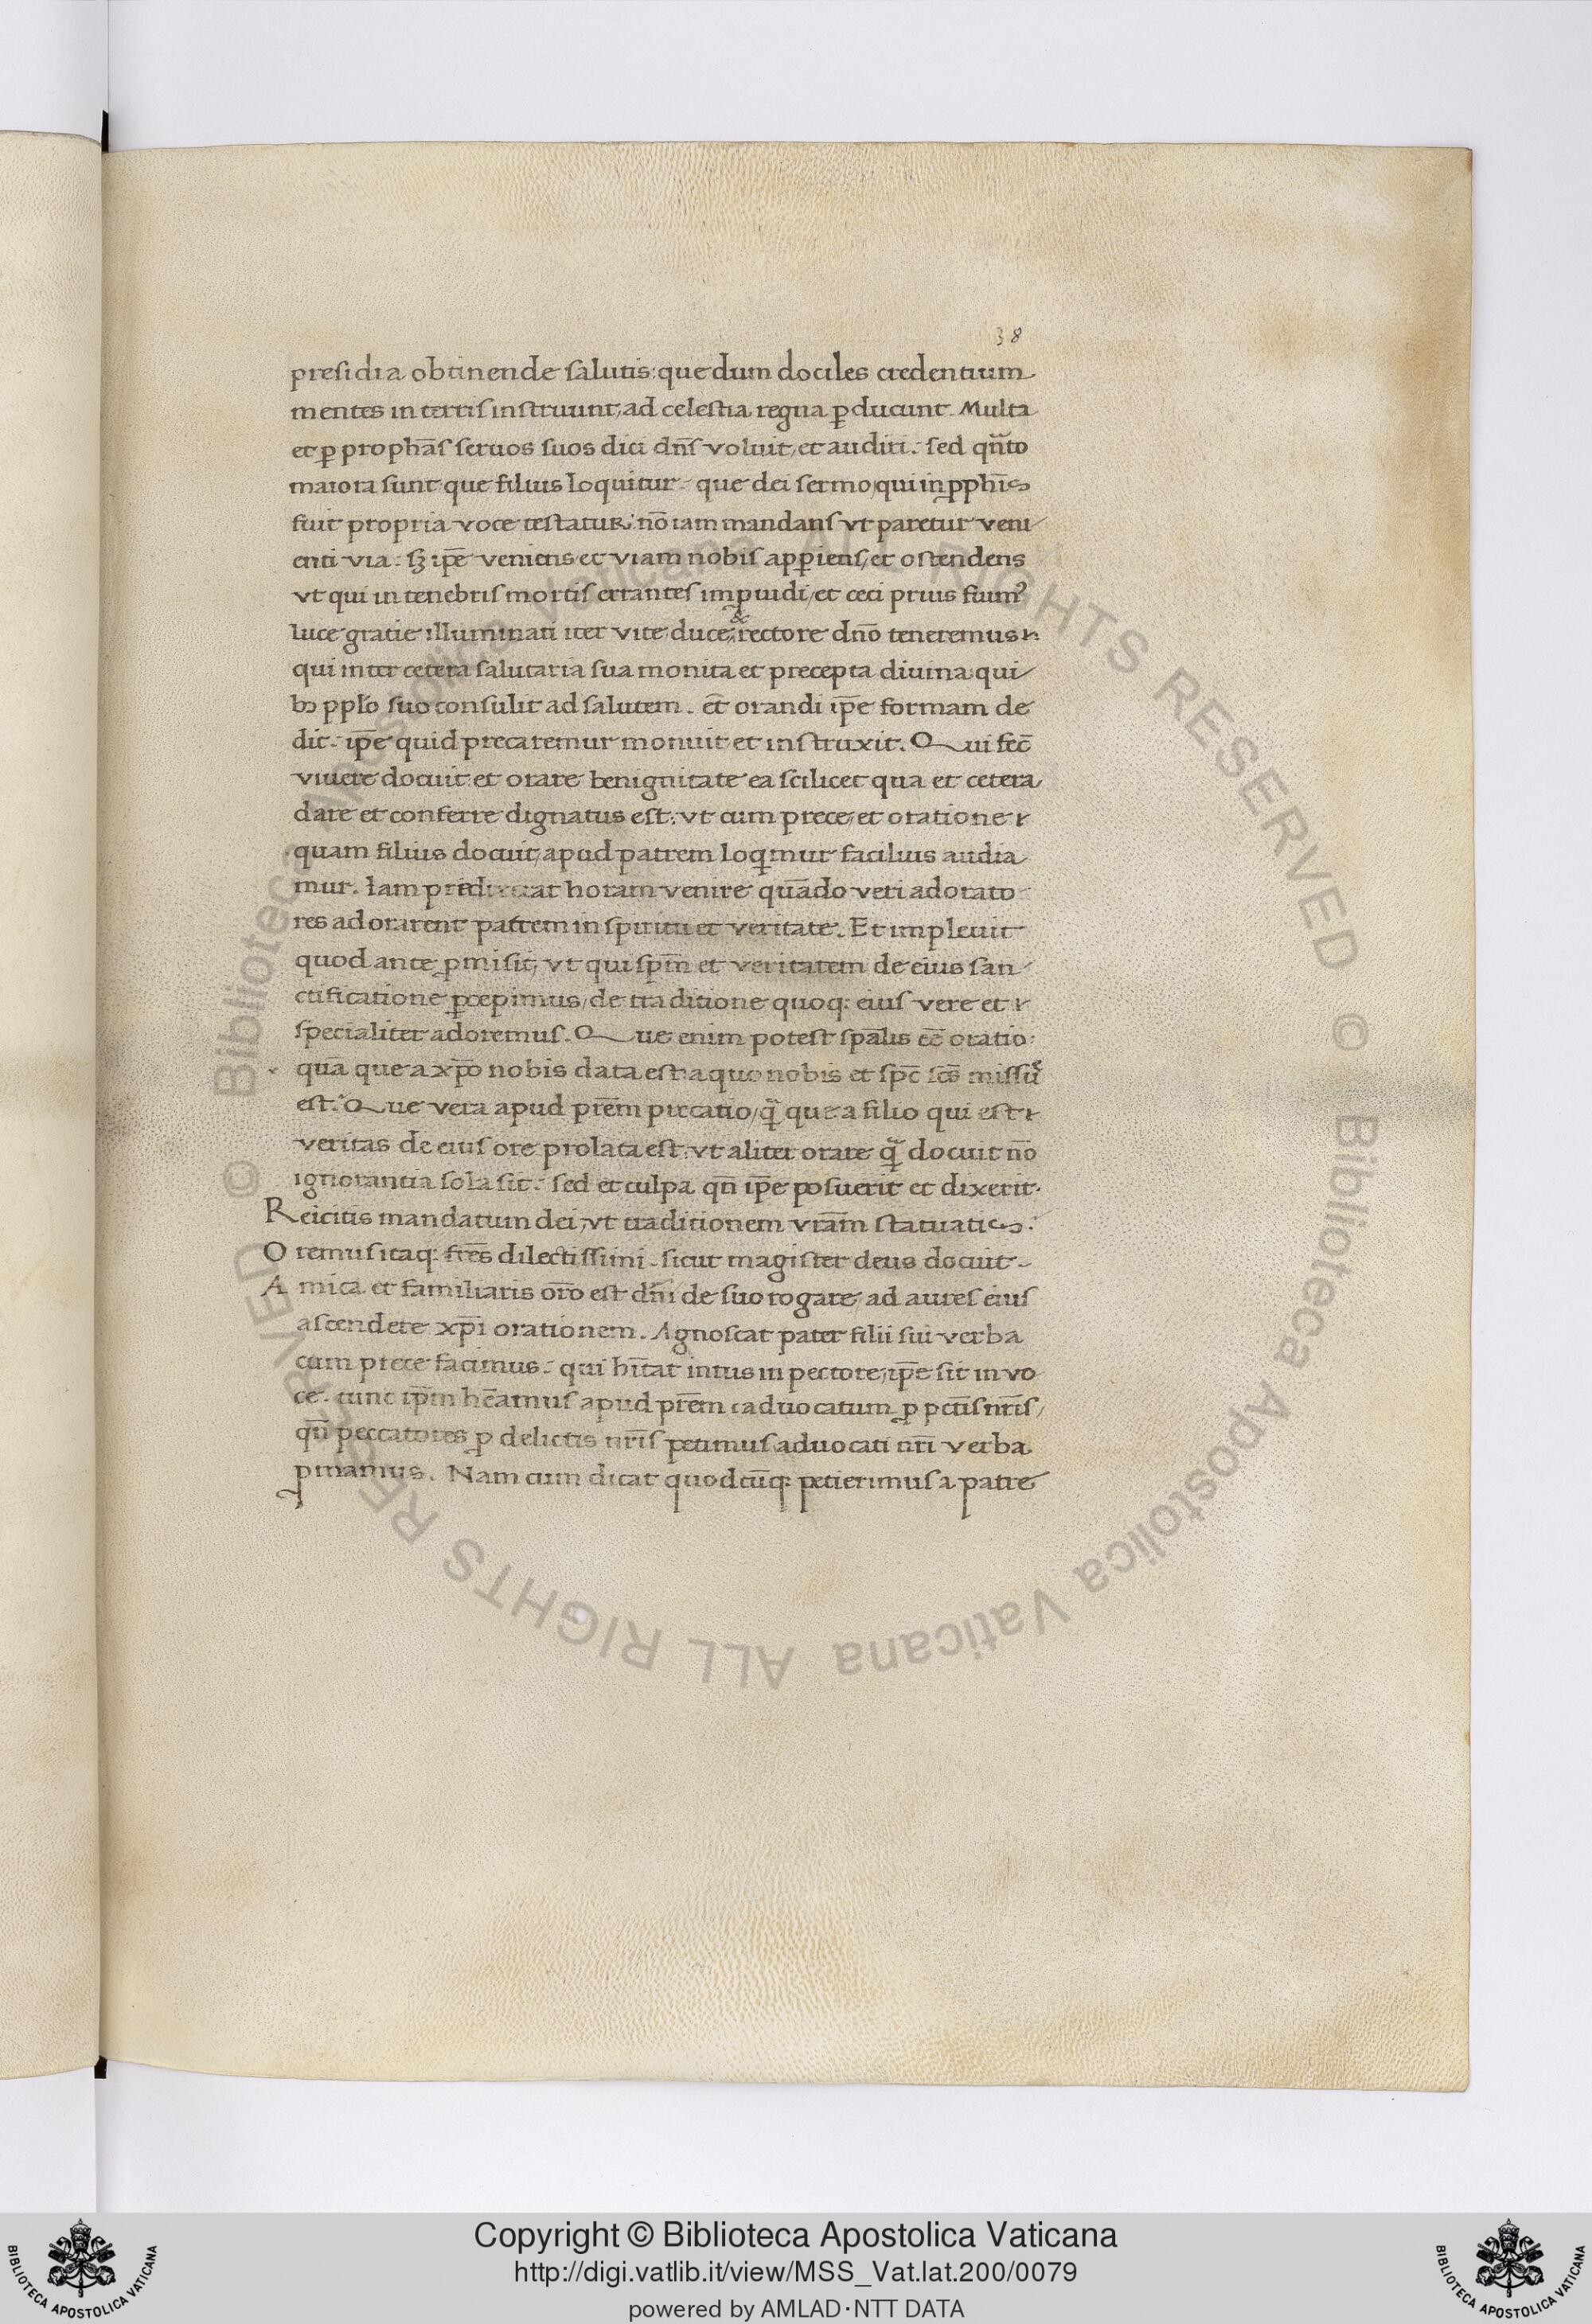 38
presidia obtinende salutis: que dum dociles credentium
mentes in terris instruunt, ad celestia regna ꝑducunt. Multa
et ꝑ proph̄as seruos suos dici dn̄s voluit, et audiri. sed qn̄to
maiora sunt que filius loquitur. que dei sermo qui in ꝓph̄is
fuit propria voce testatur. nō iam mandans vt paretur veni
enti via. sꝫ ip̄e veniens et viam nobis apꝑiens, et ostendens
vt qui in tenebris mortis errantes imꝓuidi, et ceci prius fuimꝰ
luce gratie illuminati iter vite, duce & rectore dn̄o teneremus
qui inter cetera salutaria sua monita et precepta diuina qui
bꝫ ppl̄o suo consulit ad salutem. et̄ orandi ip̄e formam de
dit. ip̄e quid precaremur monuit et instruxit. Qui fec̄
viuere docuit et orare benignitate ea scilicet qua et cetera
dare et conferre dignatus est. vt cum prece, et oratione
quam filius docuit, apud patrem loqimur facilius audia
mur. Iam predixerat horam venire quādo veri adorato
res adorarent patrem in spiritu et veritate. Et impleuit
quod ante ꝓmisit, vt qui sp̄m et veritatem de eius san
ctificatione ꝑcepimus, de traditione quoqꝫ eius vere et
specialiter adoremus. Que enim potest sp̄alis ēe oratio
quā que a xp̄o nobis data est: a quo nobis et sp̄c sc̄s missꝰ
est. Que vera apud pr̄em precatio, qͣ que a filio qui est
veritas de eius ore prolata est. vt aliter orare qͣ docuit nō
ignorantia sola sit. sed et culpa qn̄ ip̄e posuerit et dixerit.
Reicitis mandatum dei, vt traditionem vr̄am statuatis.
Oremus itaqꝫ fr̄es dilectissimi. sicut magister deus docuit.
Amica et familiaris or̄o est dn̄i de suo rogare, ad aures eius
ascendere xp̄i orationem. Agnoscat pater filii sui verba
cum prece facimus. qui hītat intus in pectore, ip̄e sit in vo
ce. tunc ip̄m hēamus apud pr̄em aduocatum ꝓ pctīs nr̄is,
qn̄ peccatores ꝓ delictis nr̄is petimus aduocati nr̄i verba
ꝓmamus. Nam cum dicat quodcūqꝫ petierimus a patre
© Biblioteca Apostolica Vaticana ALL RIGHTS RESERVED © Biblioteca Apostolica Vaticana ALL RIGHTS RESERVED
BIBLIOTECA APOSTOLICA VATICANA
Copyright © Biblioteca Apostolica Vaticana
http://digi.vatlib.it/view/MSS_Vat.lat.200/0079
powered by AMLAD·NTT DATA
BIBLIOTECA APOSTOLICA VATICANA